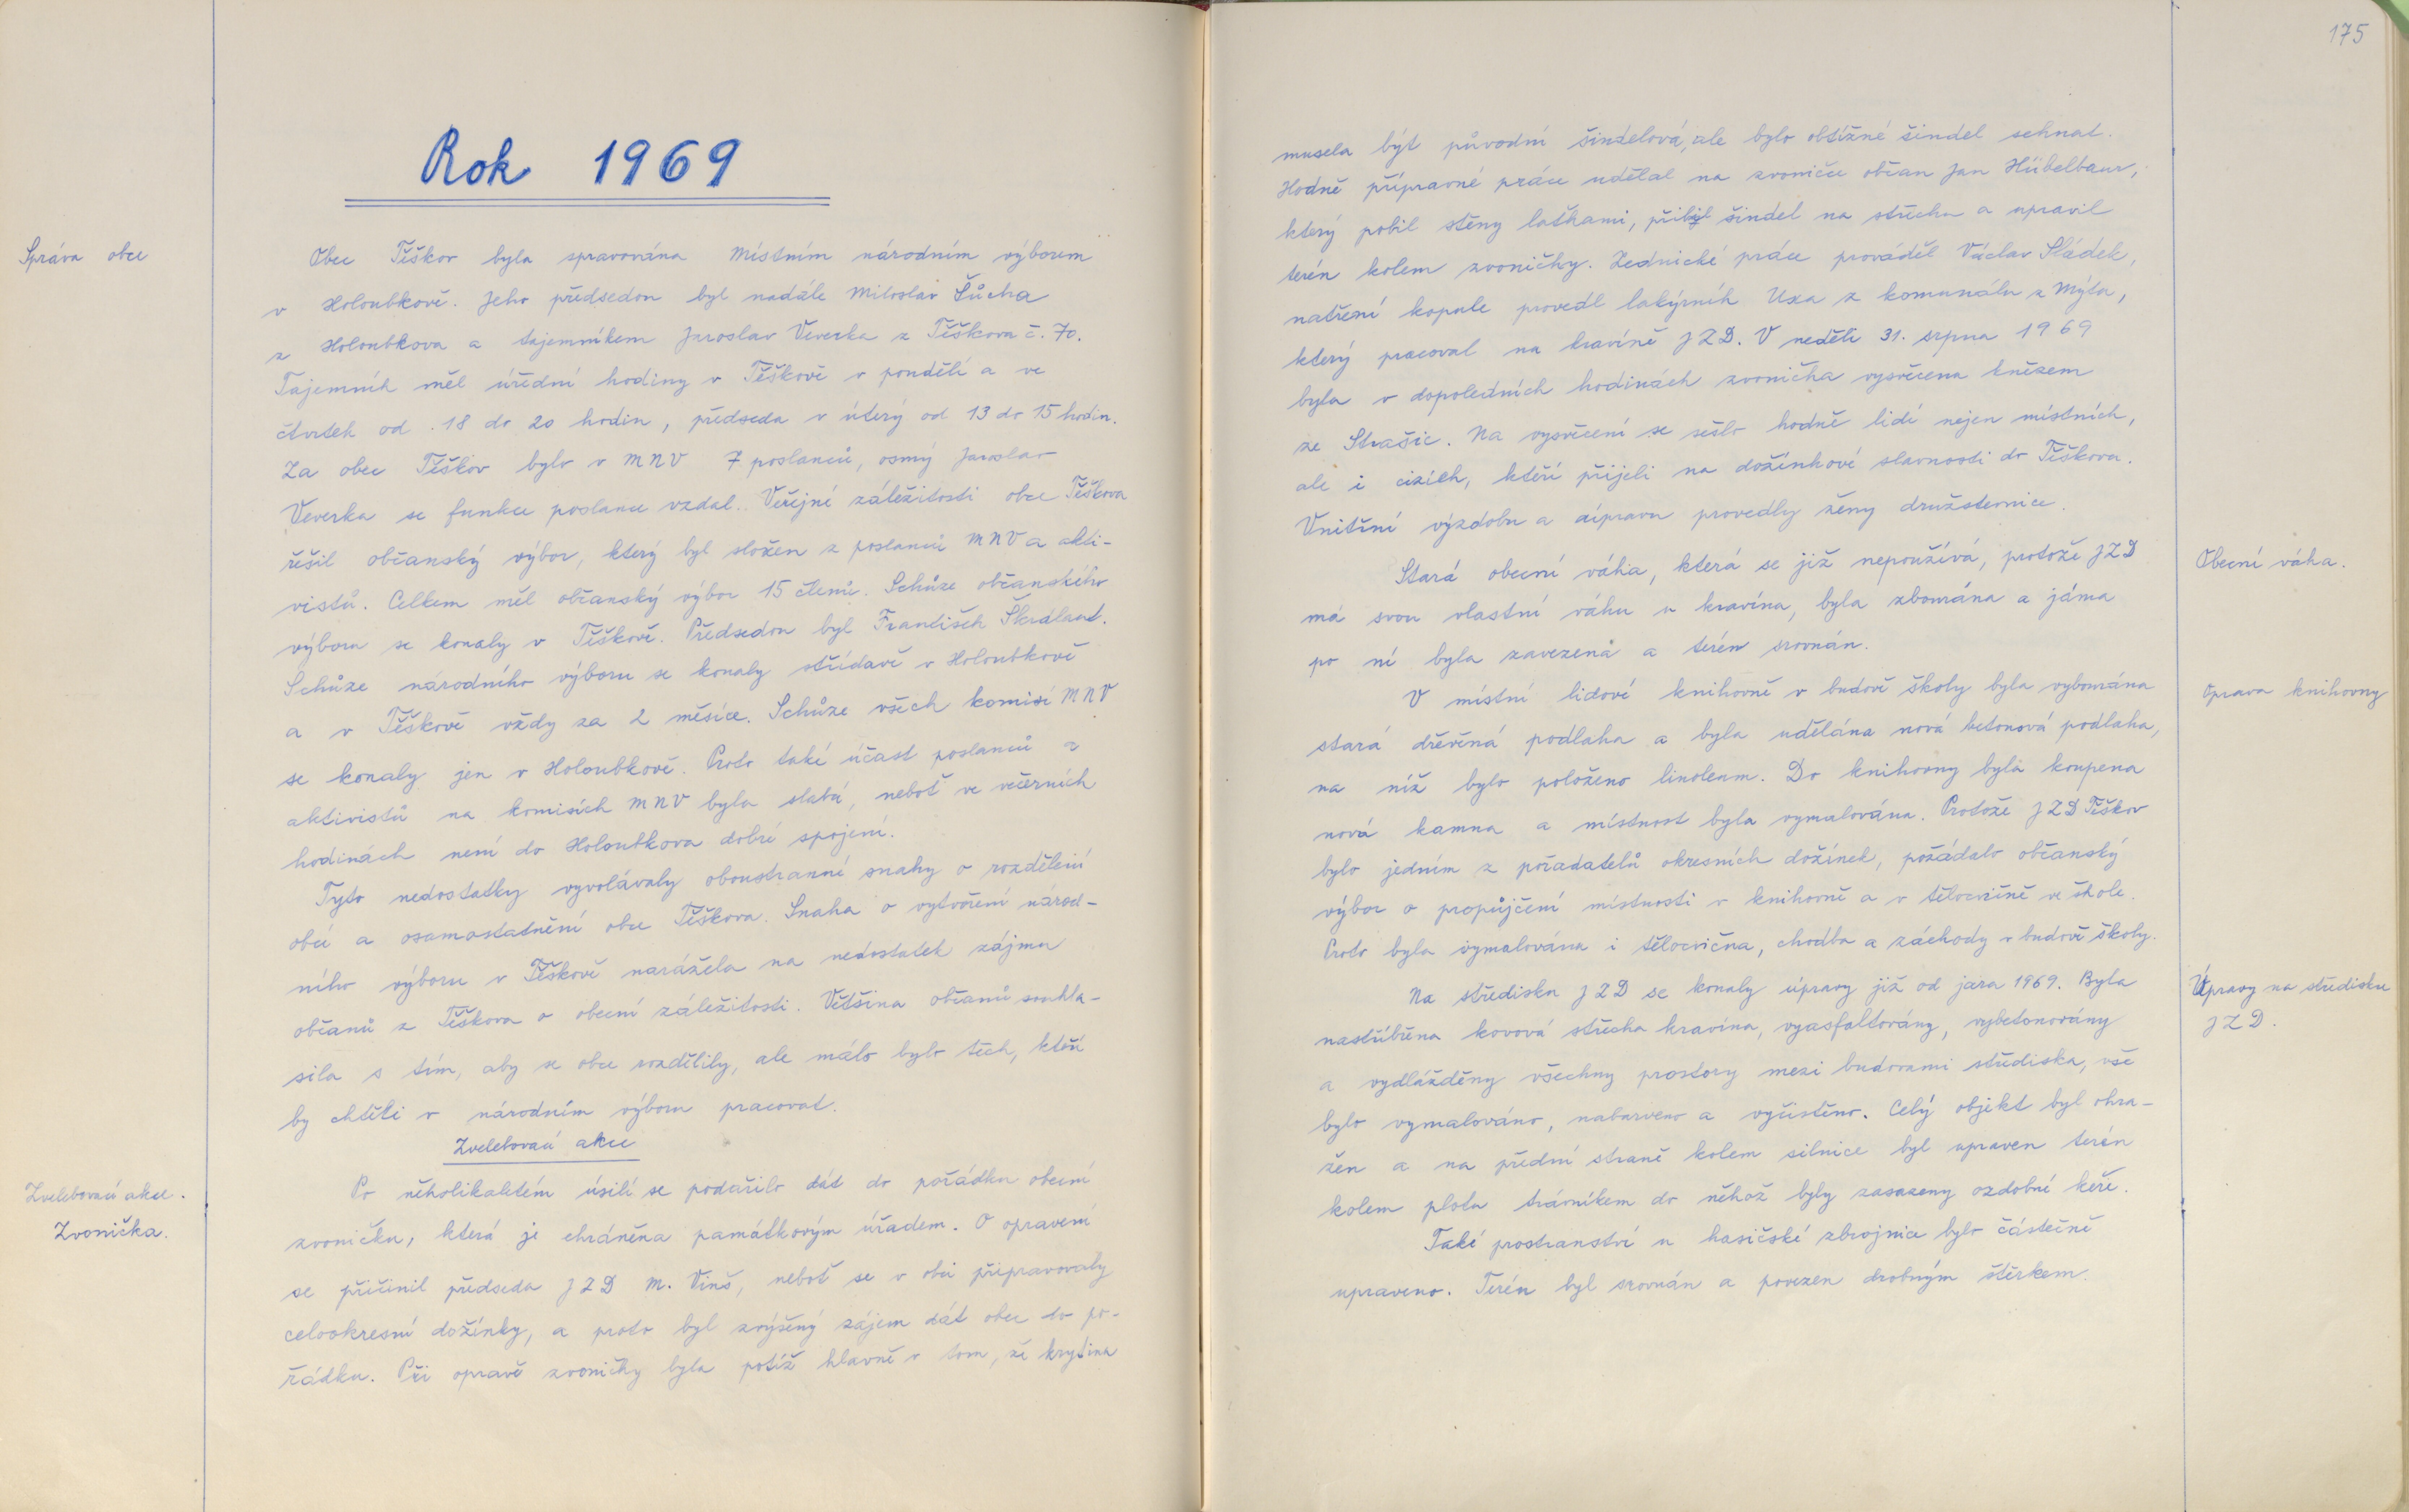 Rok 1969
Správa obce
Obec Těškov byla spravována Místním národním výborem
v Holoubkově. Jeho předsedou byl nadále Miloslav Šůcha
z Holoubkova a tajemníkem Jaroslav Veverka z Těškova č. 70.
Tajemník měl úřední hodiny v Těškově v pondělí a ve
čtvrtek od 18 do 20 hodin, předseda v úterý od 13 do 15 hodin.
Za obec Těškov bylo v MNV 7 poslanců, osmý Jaroslav
Veverka se funkce poslance vzdal. Veřejné záležitosti obce Těškova
řešil občanský výbor, který byl složen z poslanců MNV a akti-
vistů. Celkem měl občanský výbor 15 členů. Schůze občanského
výboru se konaly v Těškově. Předsedou byl František Škrdlant.
Schůze národního výboru se konaly střídavě v Holoubkově
a v Těškově vždy za 2 měsíce. Schůze všech komisí MNV
se konaly jen v Holoubkově. Proto také účast poslanců a
aktivistů na komisích MNV byla slabá, neboť ve večerních
hodinách není do Holoubkova dobré spojení.
Tyto nedostatky vyvolávaly oboustranné snahy o rozdělení
obcí a osamostatnění obce Těškova. Snaha o vytvoření národ-
ního výboru v Těškově narážela na nedostatek zájmu
občanů z Těškova o obecní záležitosti. Většina občanů souhla-
sila s tím, aby se obce rozdělily, ale málo bylo těch, kteří
by chtěli v národním výboru pracovat.
Zvelebovací akce
Zvelebovací akce.
Zvonička.
Po několikaletém úsilí se podařilo dát do pořádku obecní
zvoničku, která je chráněna památkovým úřadem. O opravení
se přičinil předseda JZD M. Vinš, neboť se v obci připravovaly
celookresní dožínky, a proto byl zvýšený zájem dát obec do po-
řádku. Při opravě zvoničky byla potíž hlavně v tom, že krytina
175
musela být původní šindelová, ale bylo obtížné šindel sehnat.
Hodně přípravné práce udělal na zvoničce občan Jan Hübelbaur,
který pobil stěny laťkami, přibil šindel na střechu a upravil
terén kolem zvoničky. Zednické práce prováděl Václav Sládek,
natření kopule provedl lakýrník Uxa z komunálu z Mýta,
který pracoval na kravíně JZD. V neděli 31. srpna 1969
byla v dopoledních hodinách zvonička vysvěcena knězem
ze Strašic. Na vysvěcení se sešlo hodně lidí nejen místních,
ale i cizích, kteří přijeli na dožínkové slavnosti do Těškova.
Vnitřní výzdobu a úpravu provedly ženy družstevnice.
Obecní váha.
Stará obecní váha, která se již nepoužívá, protože JZD
má svou vlastní váhu u kravína, byla zbourána a jáma
po ní byla zavezená a terén srovnán.
Oprava knihovny
V místní lidové knihovně v budově školy byla vybourána
stará dřevěná podlaha a byla udělána nová betonová podlaha,
na níž bylo položeno linoleum. Do knihovny byla koupena
nová kamna a místnost byla vymalována. Protože JZD Těškov
bylo jedním z pořadatelů okresních dožínek, požádalo občanský
výbor o propůjčení místnosti v knihovně a v tělocvičně ve škole.
Proto byla vymalována i tělocvična, chodba a záchody v budově školy.
Úpravy na středisku
JZD.
Na středisku JZD se konaly úpravy již od jara 1969. Byla
nastříbřena kovová střecha kravína, vyasfaltovány, vybetonovány
a vydlážděny všechny prostory mezi budovami střediska, vše
bylo vymalováno, nabarveno a vyčistěno. Celý objekt byl ohra-
žen a na přední straně kolem silnice byl upraven terén
kolem plotu trávníkem do něhož byly zasazeny ozdobné keře.
Také prostranství u hasičské zbrojnice bylo částečně
upraveno. Terén byl srovnán a povezen drobným štěrkem.